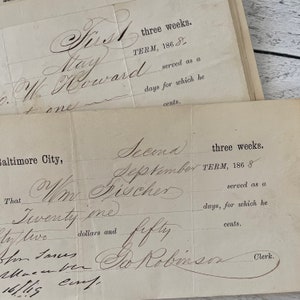 First three weeks.
May TERM, 1868.
Wm Howard served as a
one days for which he
cents.
Second three weeks.
Baltimore City, September TERM, 1868
That Wm Fischer served as a
Twenty one days, for which he
two dollars and fifty cents.
Geo Robinson Clerk.
16/69